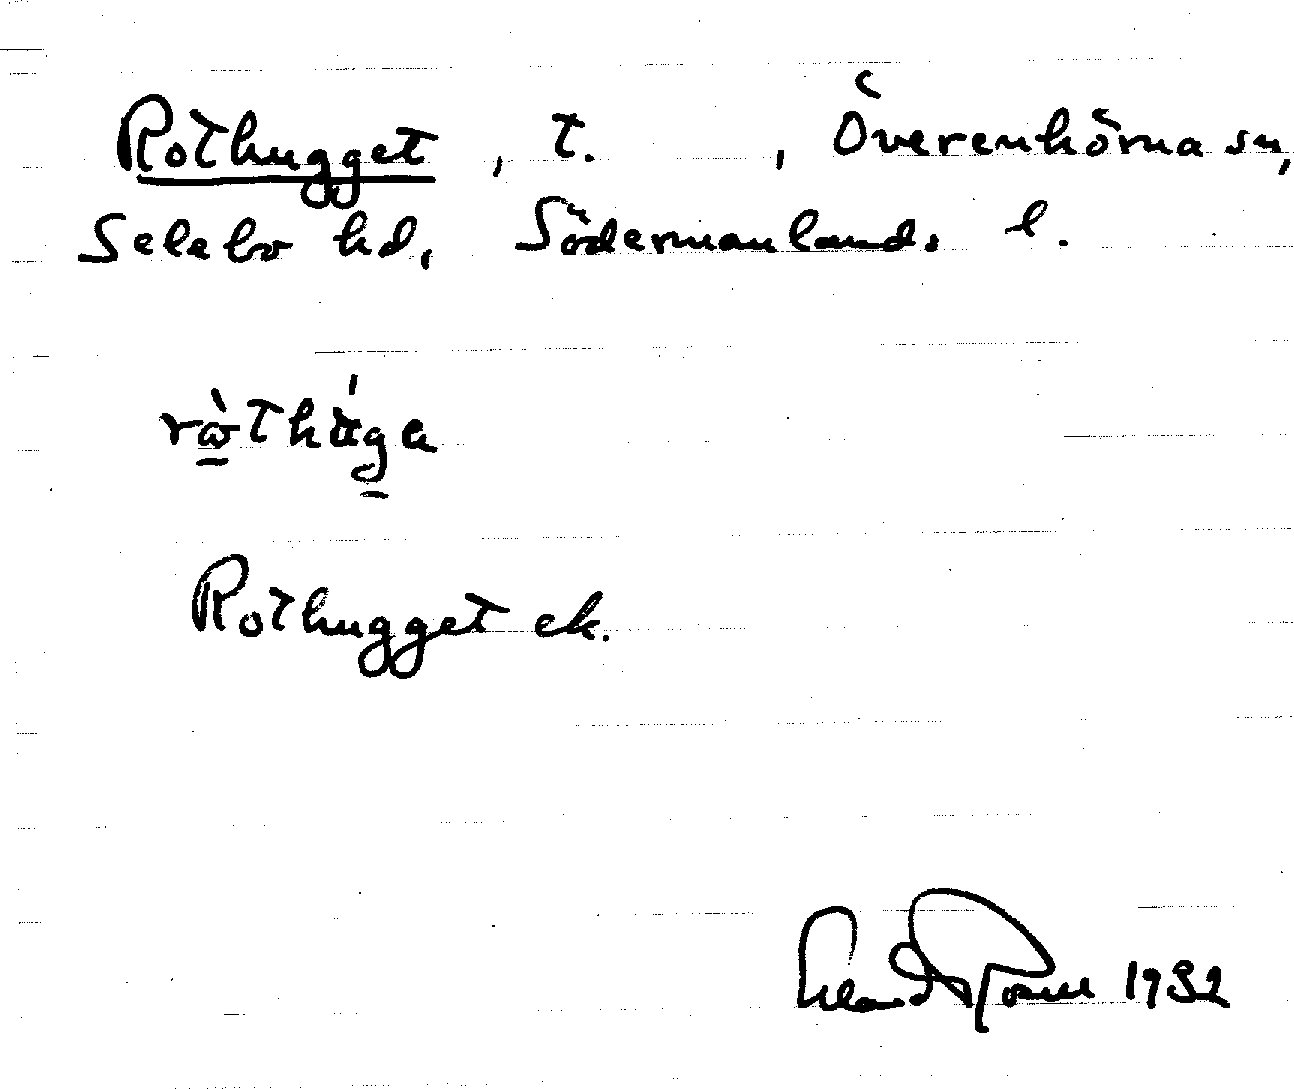 Rothugget, t. , Överenhörna sn,
Selebo hd, Södermanlands l.
ròthùga
Rothugget ek.
1932